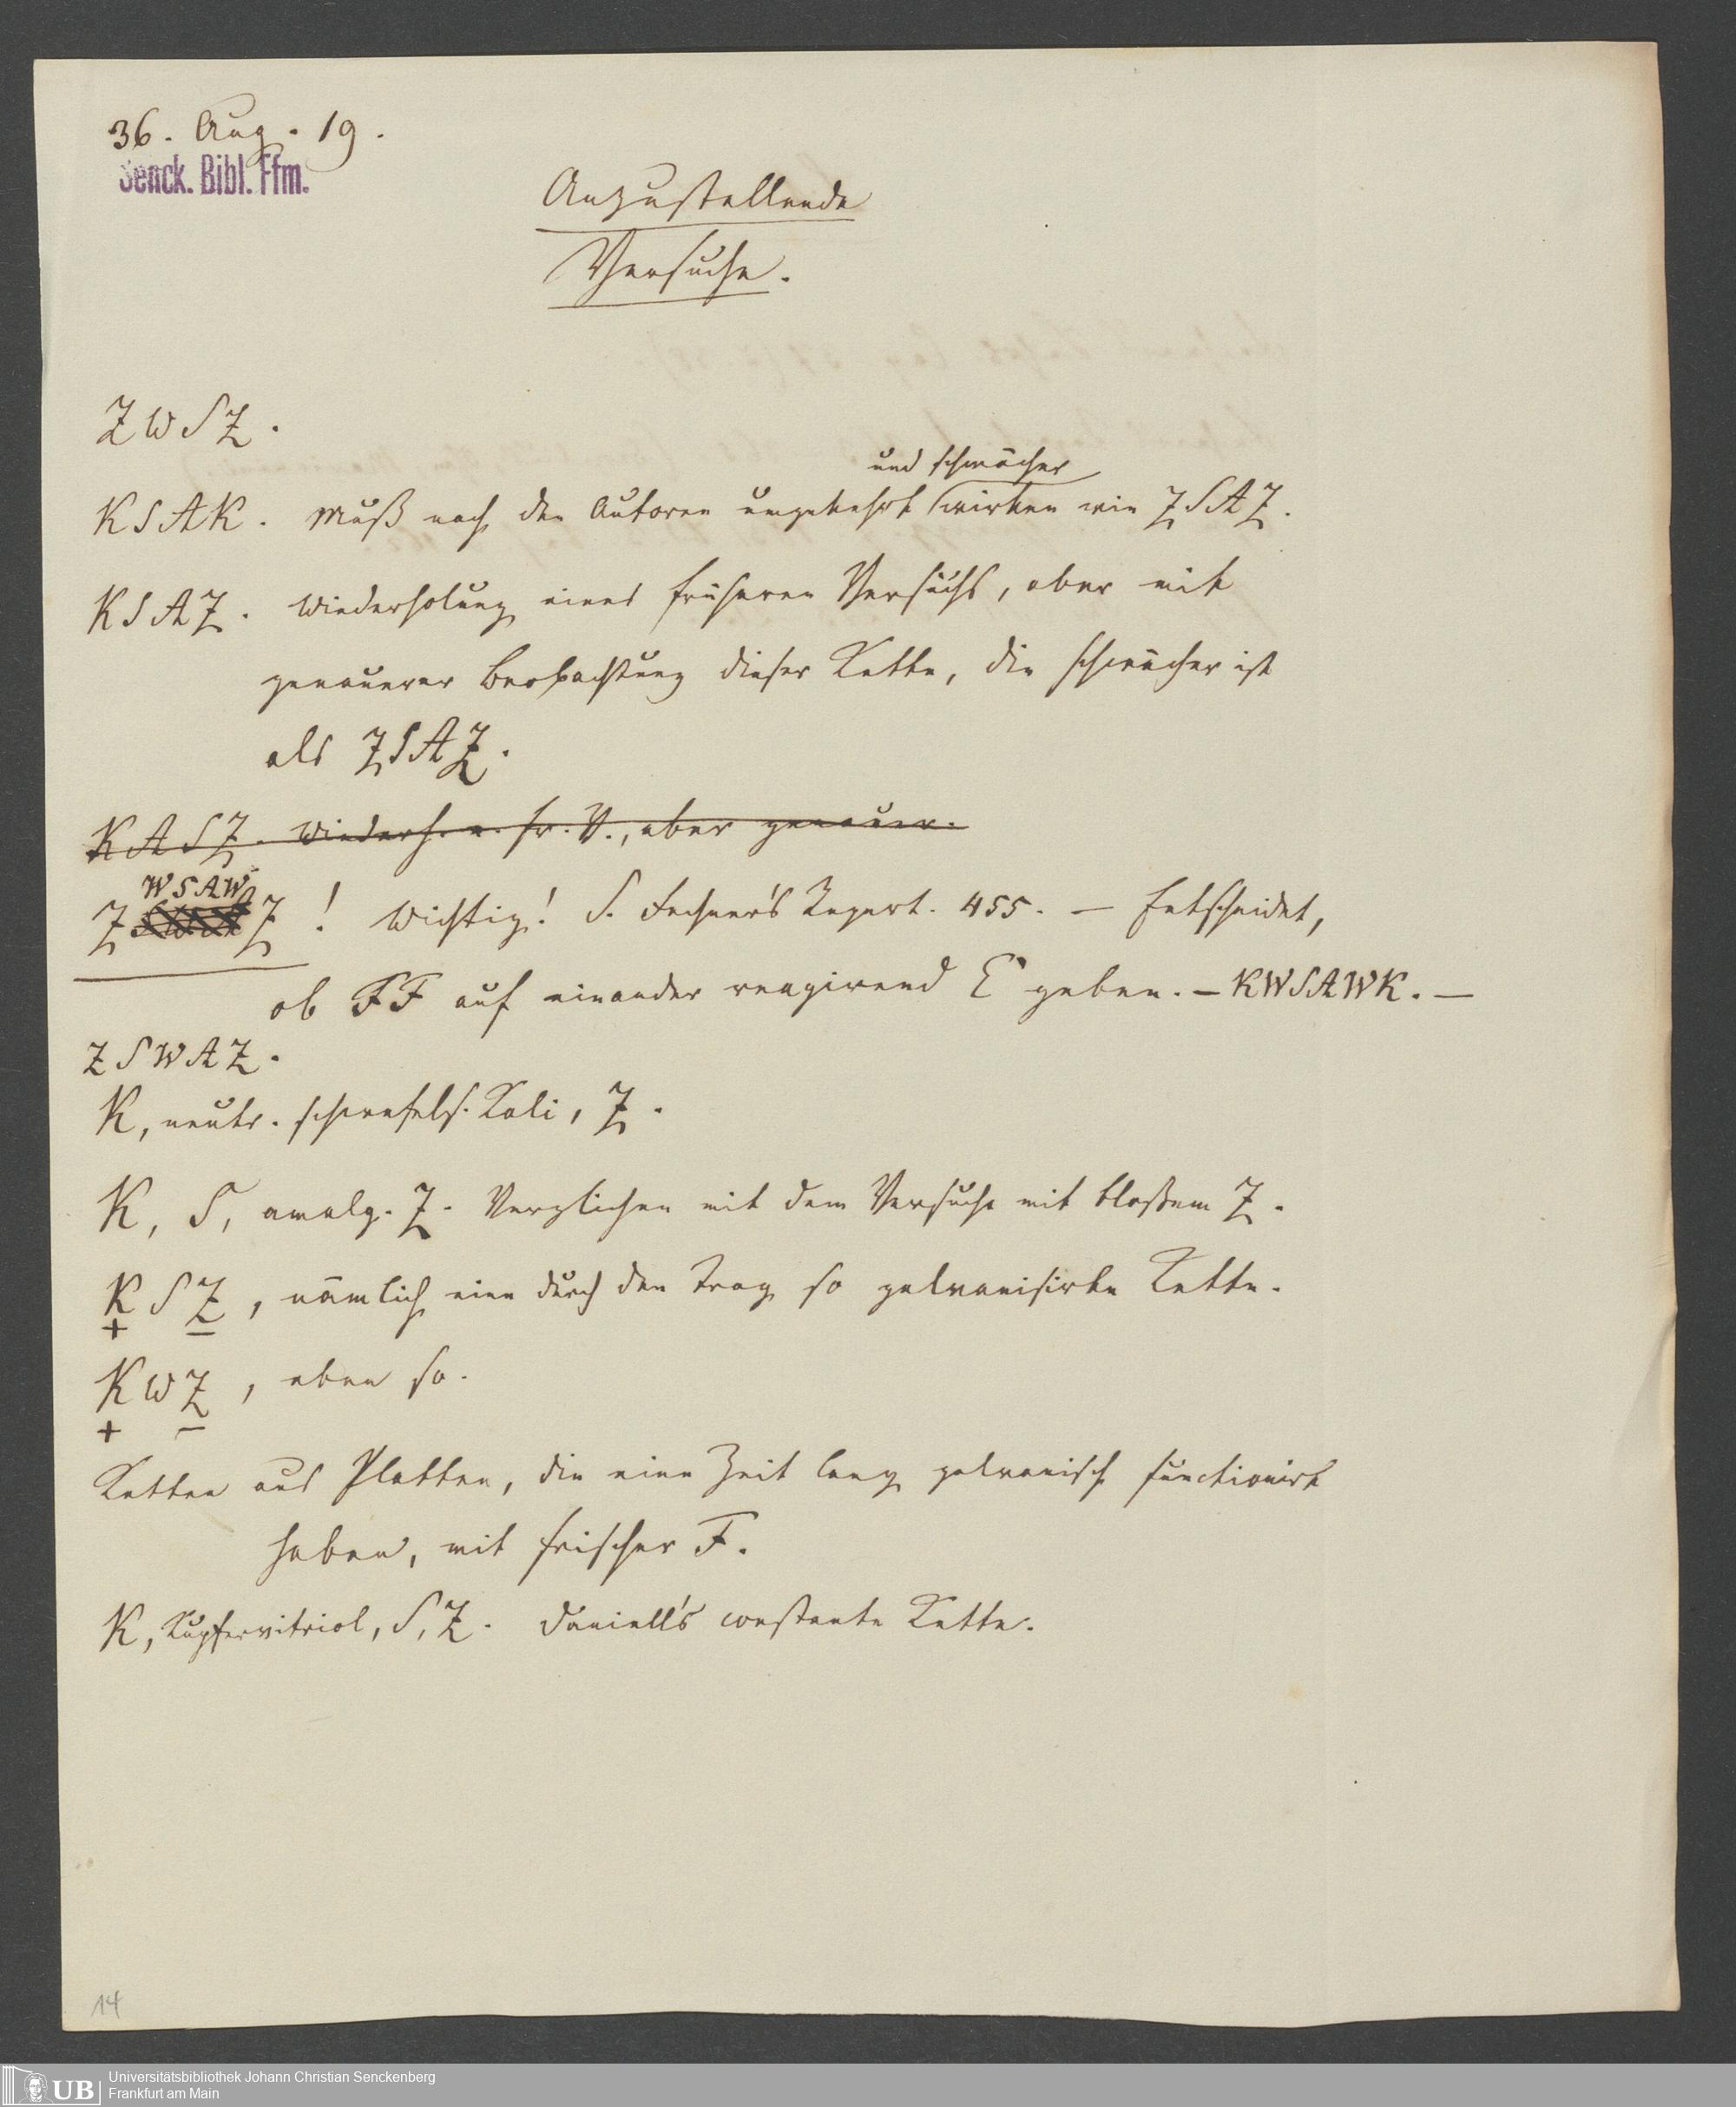 36. Aug. 19.
Senck. Bibl. Ffm.
Anzustellende
Versuche.
ZWSZ.
und schwächer
KSAK. Muß nach den Autoren umgekehrt wirken wie ZSAZ.
KSAZ. Wiederholung eines früheren Versuchs, aber mit
genauerer Beobachtung dieser Kette, die schwächer ist
als ZSAZ.
KASZ. Wiederh. e. fr. V., aber genauer.
WSAW
Z Z ! Wichtig! S. Fechner's Repert. 455. – Entscheidet,
ob FF auf einander reagirend E geben. – KWSAWK. –
ZSWAZ.
K, neutr. schwefels. Kali, Z.
K, S, amalg. Z. Verglichen mit dem Versuche mit bloßem Z.
K S Z, nämlich eine durch den Trog so galvanisirte Kette.
+ –
K W Z, eben so.
+ –
Ketten aus Platten, die eine Zeit lang galvanisch functionirt
haben, mit frischer F.
K, Kupfervitriol, S, Z. Daniell's constante Kette.
14
UB
Universitätsbibliothek Johann Christian Senckenberg
Frankfurt am Main